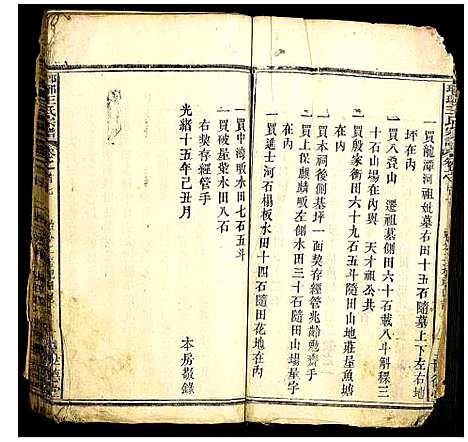 一買龍潭河祖妣墓右田十五石隨墓上下左右地
坪在內
一買八登山 遷祖墓側田六十石載八斗解釋三
十石山場在內與 天才祖公共
一買殷家衝田六十九石五斗隨田山地莊屋魚塘
在內
一買本祠後側基坪一面契存經管兆齡勉齋手
一買上保麒麟畈左側水田三十石隨田山場屋宇
在內
一買進士河石榻板水田十四石隨田花地在內
一買中灣畈水田七石五斗
一買破屋業水田八石
右契存經管手
光緒十五年己丑月
本房敬錄